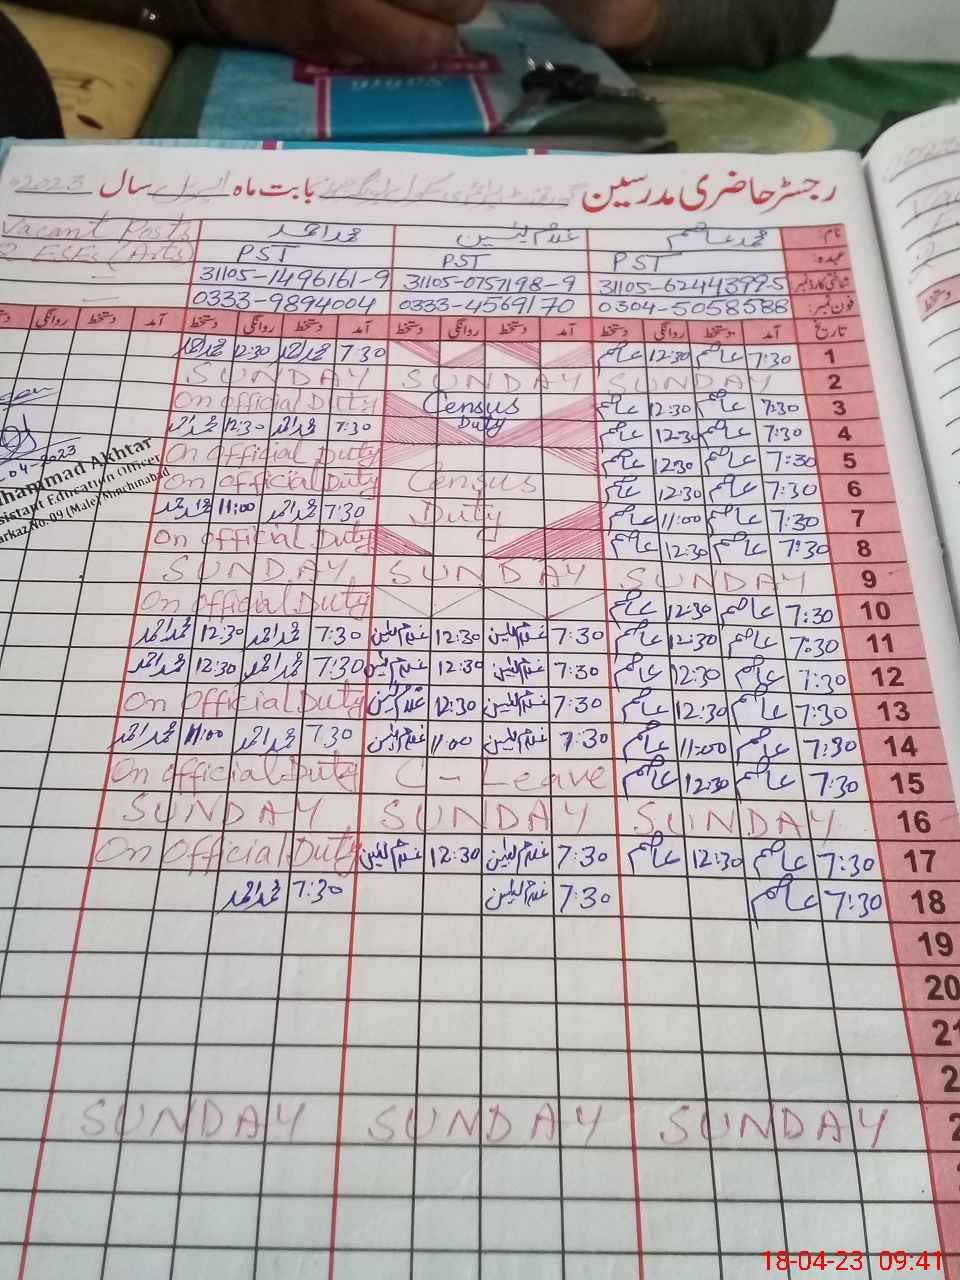 رجسٹر حاضری مدرسین بابت ماہ اپریل سال 2023
نام: محمد عاصم غلام یٰسین محمد احمد Vacant Posts
عہدہ: PST PST PST 2 ESEs (Arts)
شناختی کارڈ نمبر 31105-6244399-5 31105-0757198-9 31105-1496161-9
فون نمبر: 0304-5058588 0333-4569170 0333-9894004
تاریخ آمد دستخط روانگی دستخط آمد دستخط روانگی دستخط آمد دستخط روانگی دستخط آمد دستخط روانگی
1 7:30 عاصم 12:30 عاصم 7:30 محمد احمد 12:30 محمد احمد
2 SUNDAY SUNDAY SUNDAY
3 7:30 عاصم 12:30 عاصم Census On official Duty
4 7:30 عاصم 12:30 عاصم Duty 7:30 محمد احمد 12:30 محمد احمد
5 7:30 عاصم 12:30 عاصم On official Duty
6 7:30 عاصم 12:30 عاصم Census On official Duty
7 7:30 عاصم 11:00 عاصم Duty 7:30 محمد احمد 11:00 محمد احمد
8 7:30 عاصم 12:30 عاصم On official Duty
9 SUNDAY SUNDAY SUNDAY
10 7:30 عاصم 12:30 عاصم On official Duty
11 7:30 عاصم 12:30 عاصم 7:30 غلام یٰسین 12:30 غلام یٰسین 7:30 محمد احمد 12:30 محمد احمد
12 7:30 عاصم 12:30 عاصم 7:30 غلام یٰسین 12:30 غلام یٰسین 7:30 محمد احمد 12:30 محمد احمد
13 7:30 عاصم 12:30 عاصم 7:30 غلام یٰسین 12:30 غلام یٰسین On official Duty
14 7:30 عاصم 11:00 عاصم 7:30 غلام یٰسین 11:00 غلام یٰسین 7:30 محمد احمد 11:00 محمد احمد
15 7:30 عاصم 12:30 عاصم C - Leave On official Duty
16 SUNDAY SUNDAY SUNDAY
17 7:30 عاصم 12:30 عاصم 7:30 غلام یٰسین 12:30 غلام یٰسین On Official Duty
18 7:30 عاصم 7:30 غلام یٰسین 7:30 محمد احمد
19
20
21
2
2 SUNDAY SUNDAY SUNDAY
04-2023
hammad Akhtar
sistant Education Officer
arkaz No. 09 (Male) Minchinabad
18-04-23 09:41